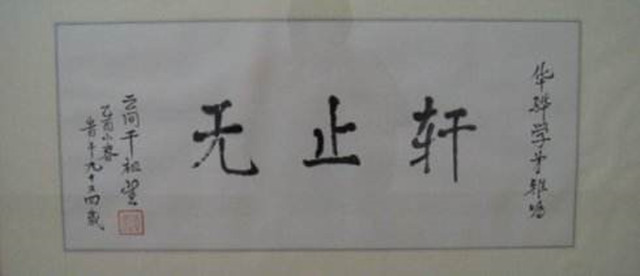 华骅学弟雅嘱
无止轩
云间干祖望
乙酉小春
年九十又四岁